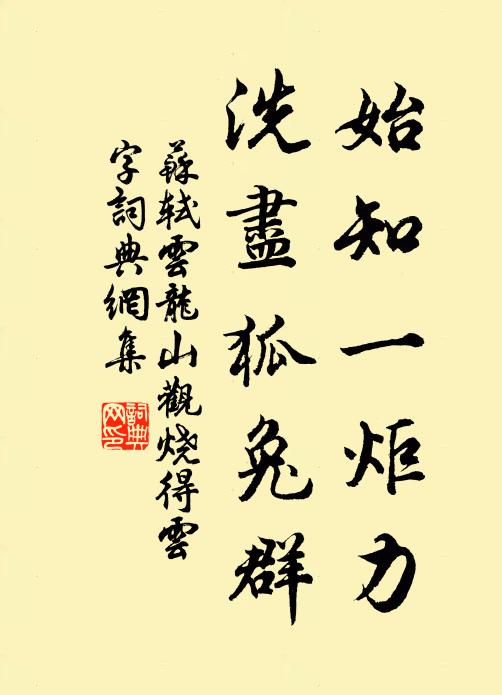 始知一炬力
洗盡狐兔群
蘇軾雲龍山觀燒得雲
字詞典網集
詞典
网印